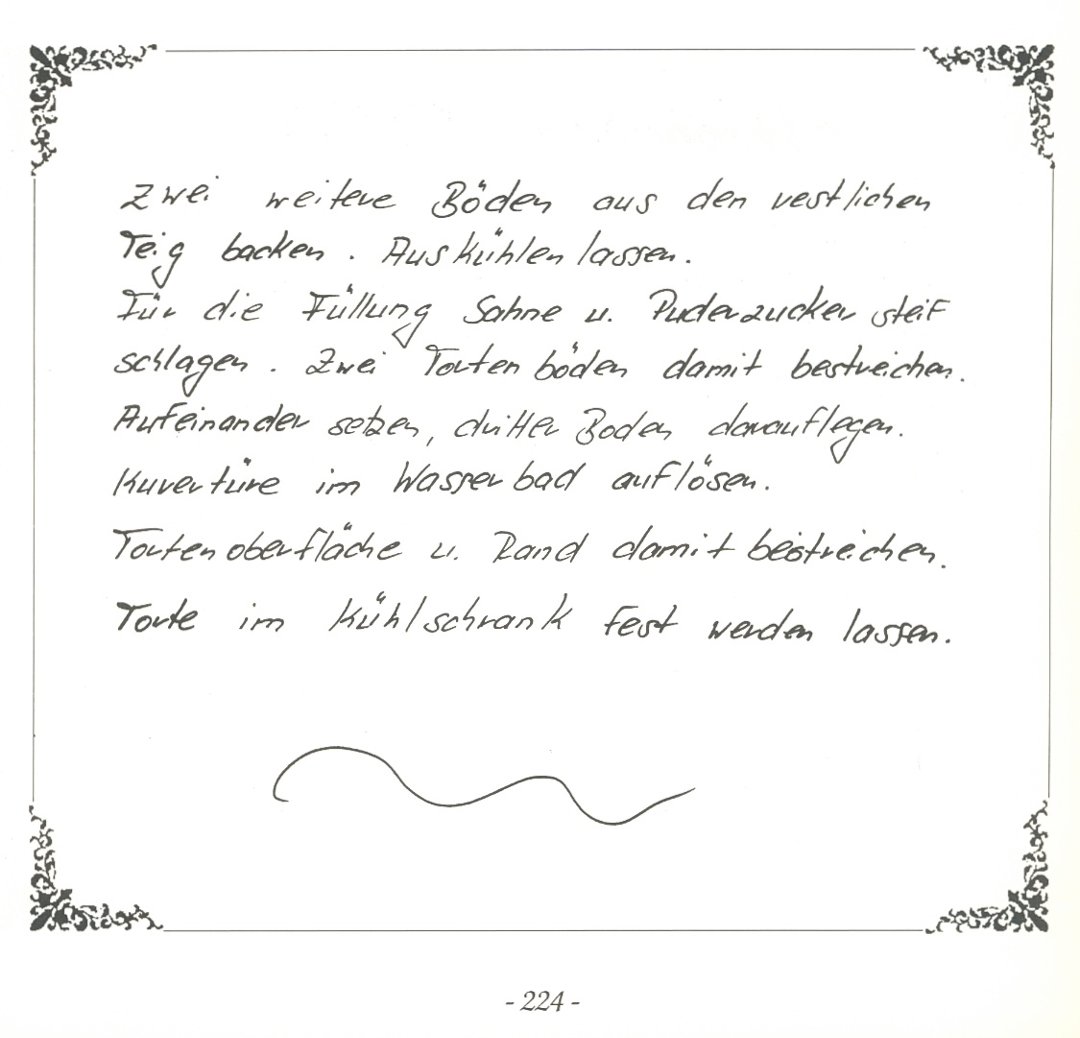 Zwei weitere Böden aus den restlichen
Teig backen. Auskühlen lassen.
Für die Füllung Sahne u. Puderzucker steif
schlagen. Zwei Tortenböden damit bestreichen.
Aufeinander setzen, dritter Boden darauflegen.
Kuvertüre im Wasserbad auflösen.
Tortenoberfläche u. Rand damit bestreichen.
Torte im Kühlschrank fest werden lassen.
- 224 -